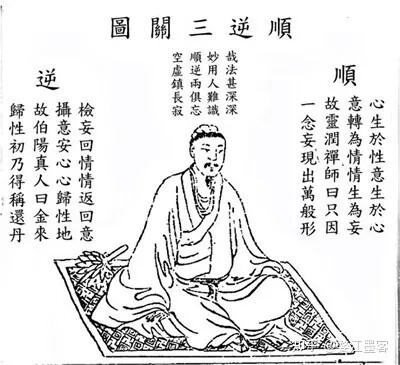 順逆三關圖
順
心生於性意生於心
意轉為情情生為妄
故靈潤禪師曰只因
一念妄現出萬般形
哉法甚深深
妙用人難識
順逆兩俱忘
空虛鎮長寂
逆
檢妄回情情返回意
攝意安心心歸性地
故伯陽真人曰金來
歸性初乃得稱還丹
知乎 @江墨客